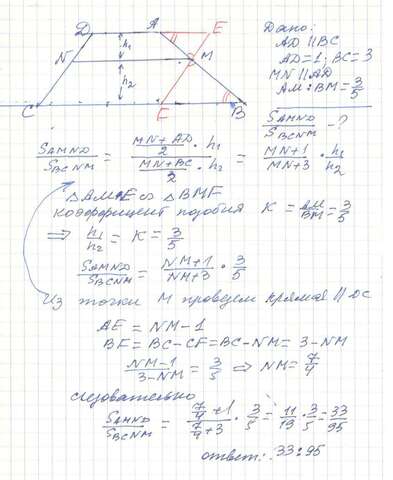 D A E
N h₁ M
h₂
C F B
Дано:
AD || BC
AD = 1; BC = 3
MN || AD
AM : BM = 3/5
S_AMND / S_BCNM - ?
S_AMND / S_BCNM = ((MN + AD)/2 · h₁) / ((MN + BC)/2 · h₂) = (MN + 1)/(MN + 3) · h₁/h₂
ΔAME ∞ ΔBMF
коэффициент подобия K = AM/BM = 3/5
⇒ h₁/h₂ = K = 3/5
S_AMND / S_BCNM = (NM + 1)/(NM + 3) · 3/5
Из точки M проведем прямая || DC
AE = NM - 1
BF = BC - CF = BC - NM = 3 - NM
(NM - 1)/(3 - NM) = 3/5 ⇒ NM = 7/4
следовательно
S_AMND / S_BCNM = (7/4 + 1)/(7/4 + 3) · 3/5 = 11/19 · 3/5 = 33/95
ответ: 33:95